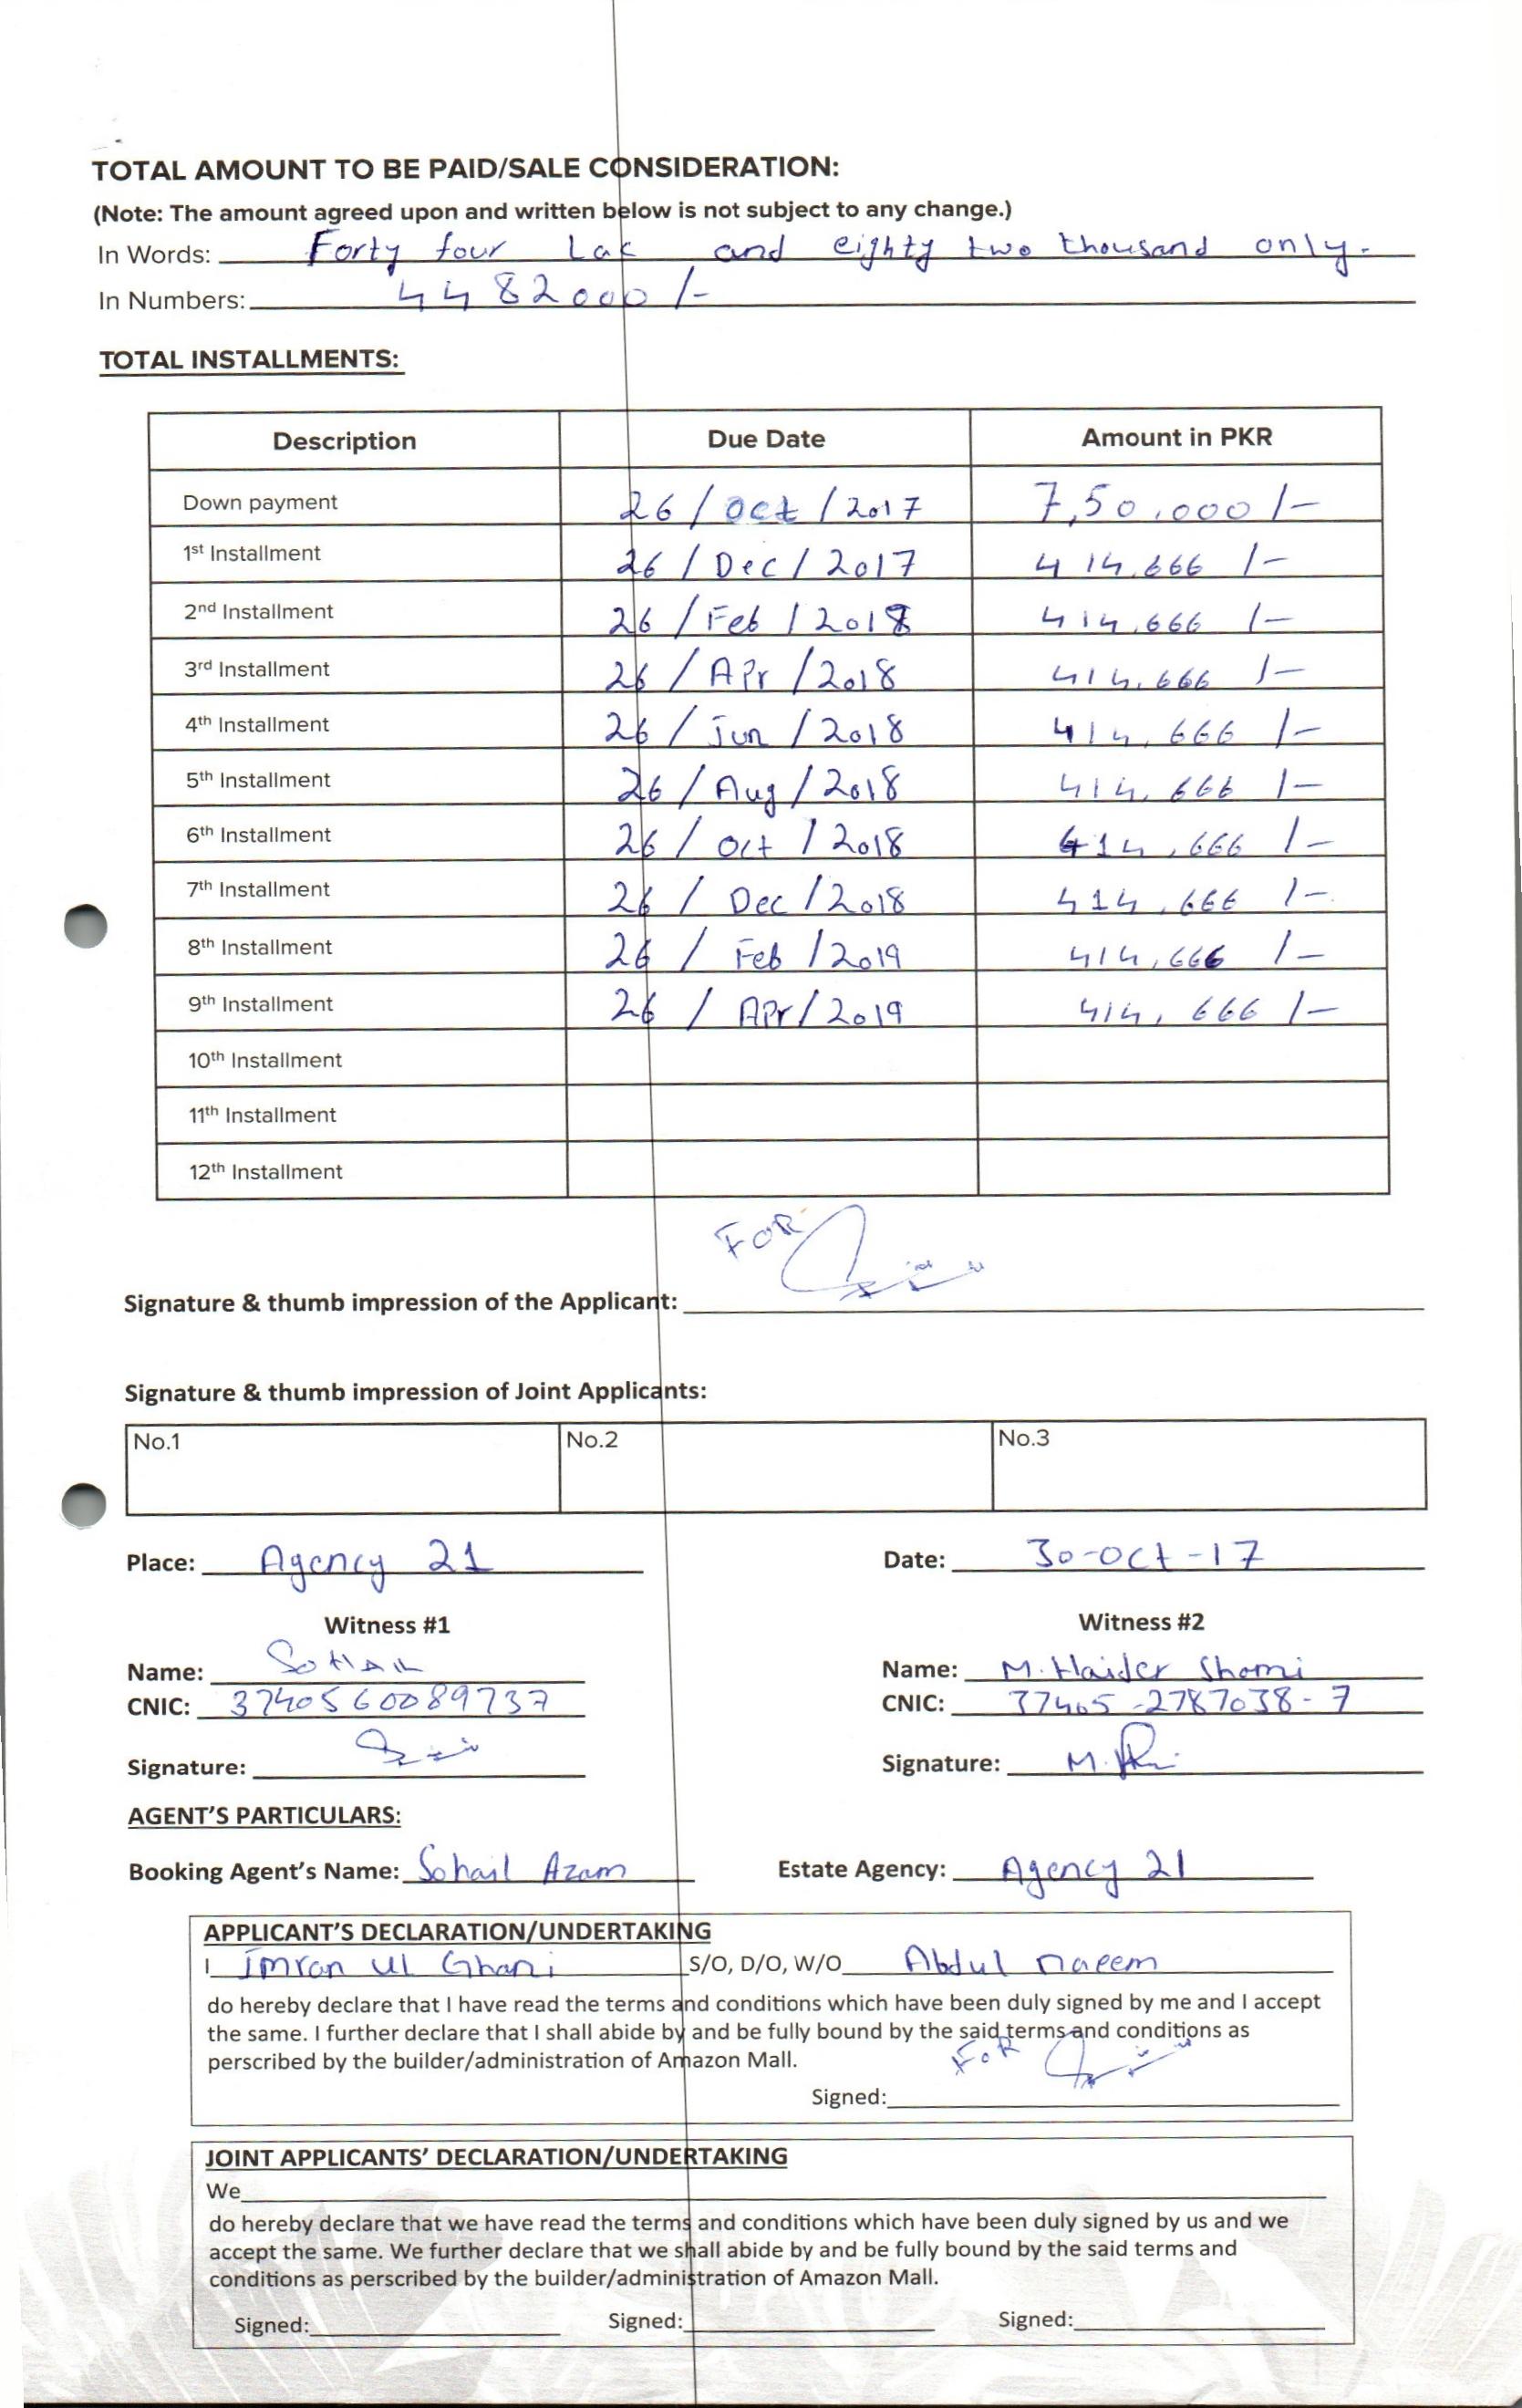 TOTAL AMOUNT TO BE PAID/SALE CONSIDERATION:
(Note: The amount agreed upon and written below is not subject to any change.)
In Words: Forty four Lac and eighty two thousand only.
In Numbers: 4482000/-
TOTAL INSTALLMENTS:
Description Due Date Amount in PKR
Down payment 26/Oct/2017 7,50,000/-
1st Installment 26/Dec/2017 414,666/-
2nd Installment 26/Feb/2018 414,666/-
3rd Installment 26/Apr/2018 414,666/-
4th Installment 26/Jun/2018 414,666/-
5th Installment 26/Aug/2018 414,666/-
6th Installment 26/Oct/2018 414,666/-
7th Installment 26/Dec/2018 414,666/-
8th Installment 26/Feb/2019 414,666/-
9th Installment 26/Apr/2019 414,666/-
10th Installment
11th Installment
12th Installment
FOR
Signature & thumb impression of the Applicant:
Signature & thumb impression of Joint Applicants:
No.1 No.2 No.3
Place: Agency 21 Date: 30-Oct-17
Witness #1 Witness #2
Name: Sohail Name: M. Haider Shami
CNIC: 3740560089737 CNIC: 37405-2787038-7
Signature: Signature:
AGENT'S PARTICULARS:
Booking Agent's Name: Sohail Azam Estate Agency: Agency 21
APPLICANT'S DECLARATION/UNDERTAKING
I Imran Ul Ghani S/O, D/O, W/O Abdul Naeem
do hereby declare that I have read the terms and conditions which have been duly signed by me and I accept
the same. I further declare that I shall abide by and be fully bound by the said terms and conditions as
perscribed by the builder/administration of Amazon Mall.
FOR
Signed:
JOINT APPLICANTS' DECLARATION/UNDERTAKING
We
do hereby declare that we have read the terms and conditions which have been duly signed by us and we
accept the same. We further declare that we shall abide by and be fully bound by the said terms and
conditions as perscribed by the builder/administration of Amazon Mall.
Signed: Signed: Signed: